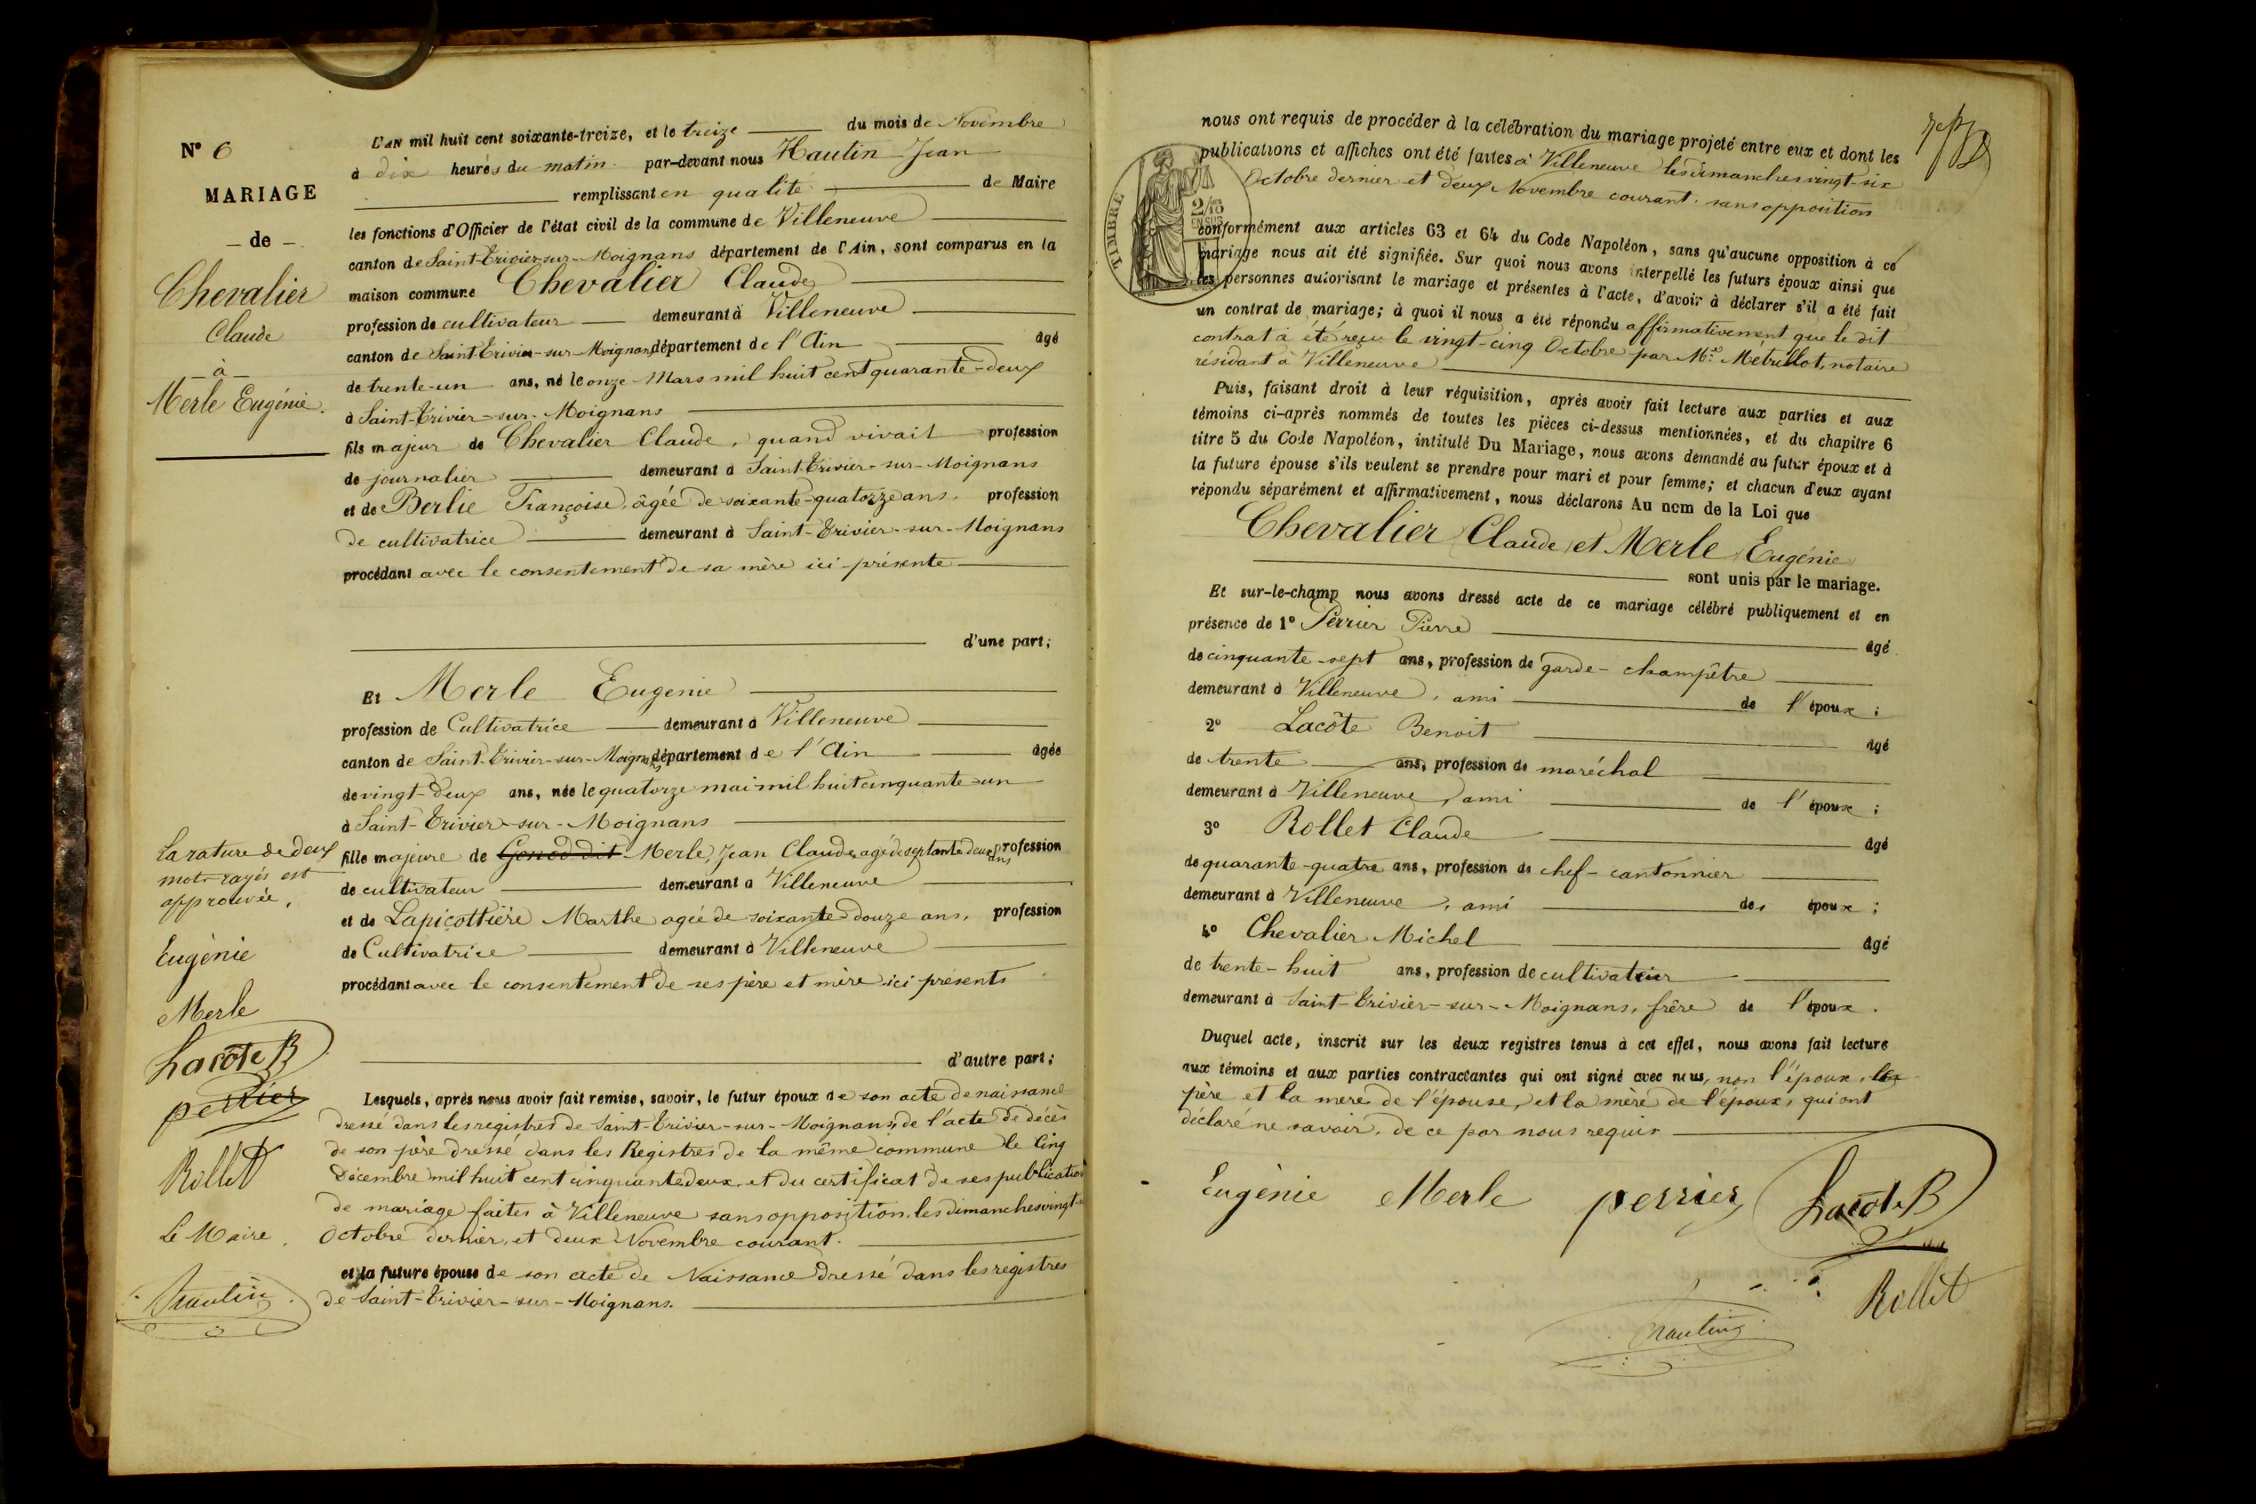 N° 6
MARIAGE
— de —
Chevalier
Claude
— à —
Merle Eugénie.
L'AN mil huit cent soixante-treize, et le treize du mois de Novembre
à dix heures du matin par-devant nous Hautin Jean
remplissant en qualité de Maire
les fonctions d'Officier de l'état civil de la commune de Villeneuve
canton de Saint-Trivier-sur-Moignans département de l'Ain, sont comparus en la
maison commune Chevalier Claude
profession de cultivateur demeurant à Villeneuve
canton de Saint-Trivier-sur-Moignans département de l'Ain âgé
de trente-un ans, né le onze Mars mil huit cent quarante-deux
à Saint-Trivier-sur-Moignans
fils majeur de Chevalier Claude, quand vivait profession
de journalier demeurant à Saint-Trivier-sur-Moignans
et de Berlie Françoise, âgée de soixante-quatorze ans. profession
de cultivatrice demeurant à Saint-Trivier-sur-Moignans
procédant avec le consentement de sa mère ici présente
d'une part;
Et Merle Eugénie
profession de Cultivatrice demeurant à Villeneuve
canton de Saint-Trivier-sur-Moignans département de l'Ain âgée
de vingt-deux ans, née le quatorze mai mil huit cinquante-un
à Saint-Trivier-sur-Moignans
fille majeure de Genod dit Merle, Jean Claude, agé de septante deux ans profession
de cultivateur demeurant à Villeneuve
et de Lapicottière Marthe agée de soixante-douze ans, profession
de Cultivatrice demeurant à Villeneuve
procédant avec le consentement de ses père et mère ici présents
d'autre part;
Lesquels, après nous avoir fait remise, savoir, le futur époux de son acte de naissance
dressé dans les registres de Saint-Trivier-sur-Moignans, de l'acte de décès
de son père dressé dans les Registres de la même commune le Cinq
Décembre mil huit cent cinquante deux et du certificat de ses publications
de mariage faites à Villeneuve sans opposition, les dimanches vingt-six
Octobre dernier, et deux Novembre courant.
et la future épouse de son acte de Naissance dressé dans les registres
de Saint-Trivier-sur-Moignans.
La rature de deux
mots rayés est
approuvée.
Eugénie
Merle
Lacôte B
perrier
Rollet
Le Maire.
Hautin
nous ont requis de procéder à la célébration du mariage projeté entre eux et dont les
publications et affiches ont été faites à Villeneuve les dimanches vingt-six
Octobre dernier et deux Novembre courant. sans opposition
TIMBRE
2/10
EN SUS
conformément aux articles 63 et 64 du Code Napoléon, sans qu'aucune opposition à ce
mariage nous ait été signifiée. Sur quoi nous avons interpellé les futurs époux ainsi que
les personnes autorisant le mariage et présentes à l'acte, d'avoir à déclarer s'il a été fait
un contrat de mariage; à quoi il nous a été répondu affirmativement que le dit
contrat a été reçu le vingt-cinq Octobre par Me Métrillot, notaire
résidant à Villeneuve
Puis, faisant droit à leur réquisition, après avoir fait lecture aux parties et aux
témoins ci-après nommés de toutes les pièces ci-dessus mentionnées, et du chapitre 6
titre 5 du Code Napoléon, intitulé Du Mariage, nous avons demandé au futur époux et à
la future épouse s'ils veulent se prendre pour mari et pour femme; et chacun d'eux ayant
répondu séparément et affirmativement, nous déclarons Au nom de la Loi que
Chevalier Claude et Merle Eugénie
sont unis par le mariage.
Et sur-le-champ nous avons dressé acte de ce mariage célébré publiquement et en
présence de 1° Perrier Pierre âgé
de cinquante-sept ans, profession de garde-champêtre
demeurant à Villeneuve, ami de l'époux;
2° Lacôte Benoit âgé
de trente ans, profession de maréchal
demeurant à Villeneuve, ami de l'époux;
3° Rollet Claude âgé
de quarante-quatre ans, profession de chef-cantonnier
demeurant à Villeneuve, ami des époux;
4° Chevalier Michel âgé
de trente-huit ans, profession de cultivateur
demeurant à Saint-Trivier-sur-Moignans, frère de l'époux.
Duquel acte, inscrit sur les deux registres tenus à cet effet, nous avons fait lecture
aux témoins et aux parties contractantes qui ont signé avec nous, non l'époux, les
père et la mère de l'épouse, et la mère de l'époux, qui ont
déclaré ne savoir, de ce par nous requis
Eugénie Merle perrier Lacôte B
Rollet
Hautin